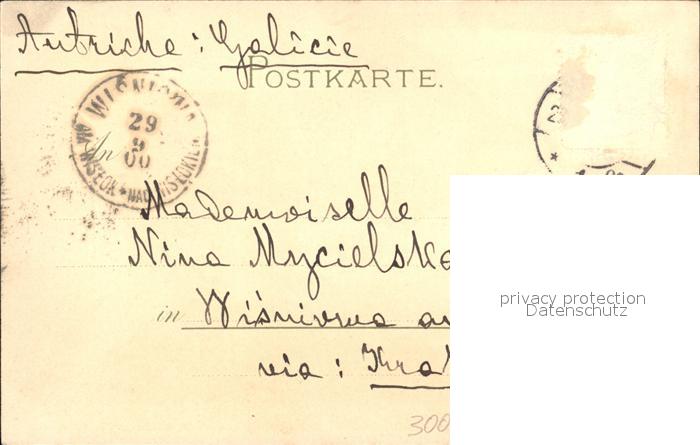 Autriche : Galicie
POSTKARTE.
WIŚNIOWA
29
9
00
An
Mademoiselle
Nina Mycielska
in Wiśniowa
via : Kra
privacy protection
Datenschutz
300